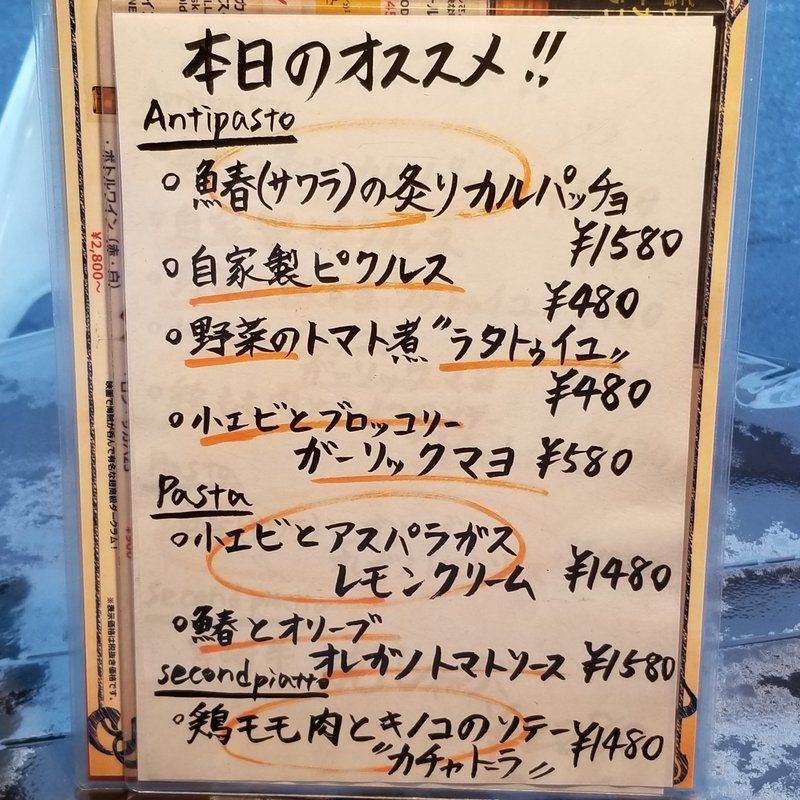 本日のオススメ!!
Antipasto
○鰆(サワラ)の炙りカルパッチョ
¥1580
○自家製ピクルス
¥480
○野菜のトマト煮〝ラタトゥイユ〟
¥480
○小エビとブロッコリー
ガーリックマヨ ¥580
Pasta
○小エビとアスパラガス
レモンクリーム ¥1480
○鰆とオリーブ
オレガノトマトソース ¥1580
secondpiatto
○鶏モモ肉とキノコのソテー ¥1480
〝カチャトーラ〟
・ボトルワイン(赤・白)
¥2,800~
※表示価格は税抜き価格です。